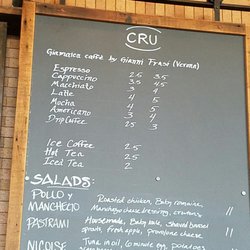 CRU
Giamaica caffé by Gianni Frasi (Verona)
Espresso 2.5 3.5
Cappuccino 3.5 4.5
Macchiato 3 4
Latte 4 5
Mocha 4 5
Americano 3 4
Drip Coffee 2.5 3
Ice Coffee 2.5
Hot Tea 2.5
Iced Tea 2
SALADS:
POLLO Y Roasted chicken, Baby romaine,
MANCHEGO Manchego cheese dressing, croutons 11
PASTRAMI Housemade, Baby kale, shaved brussel
sprouts, fresh apple, provolone cheese 11
NICOISE Tuna in oil, 6 minute egg, potatoes